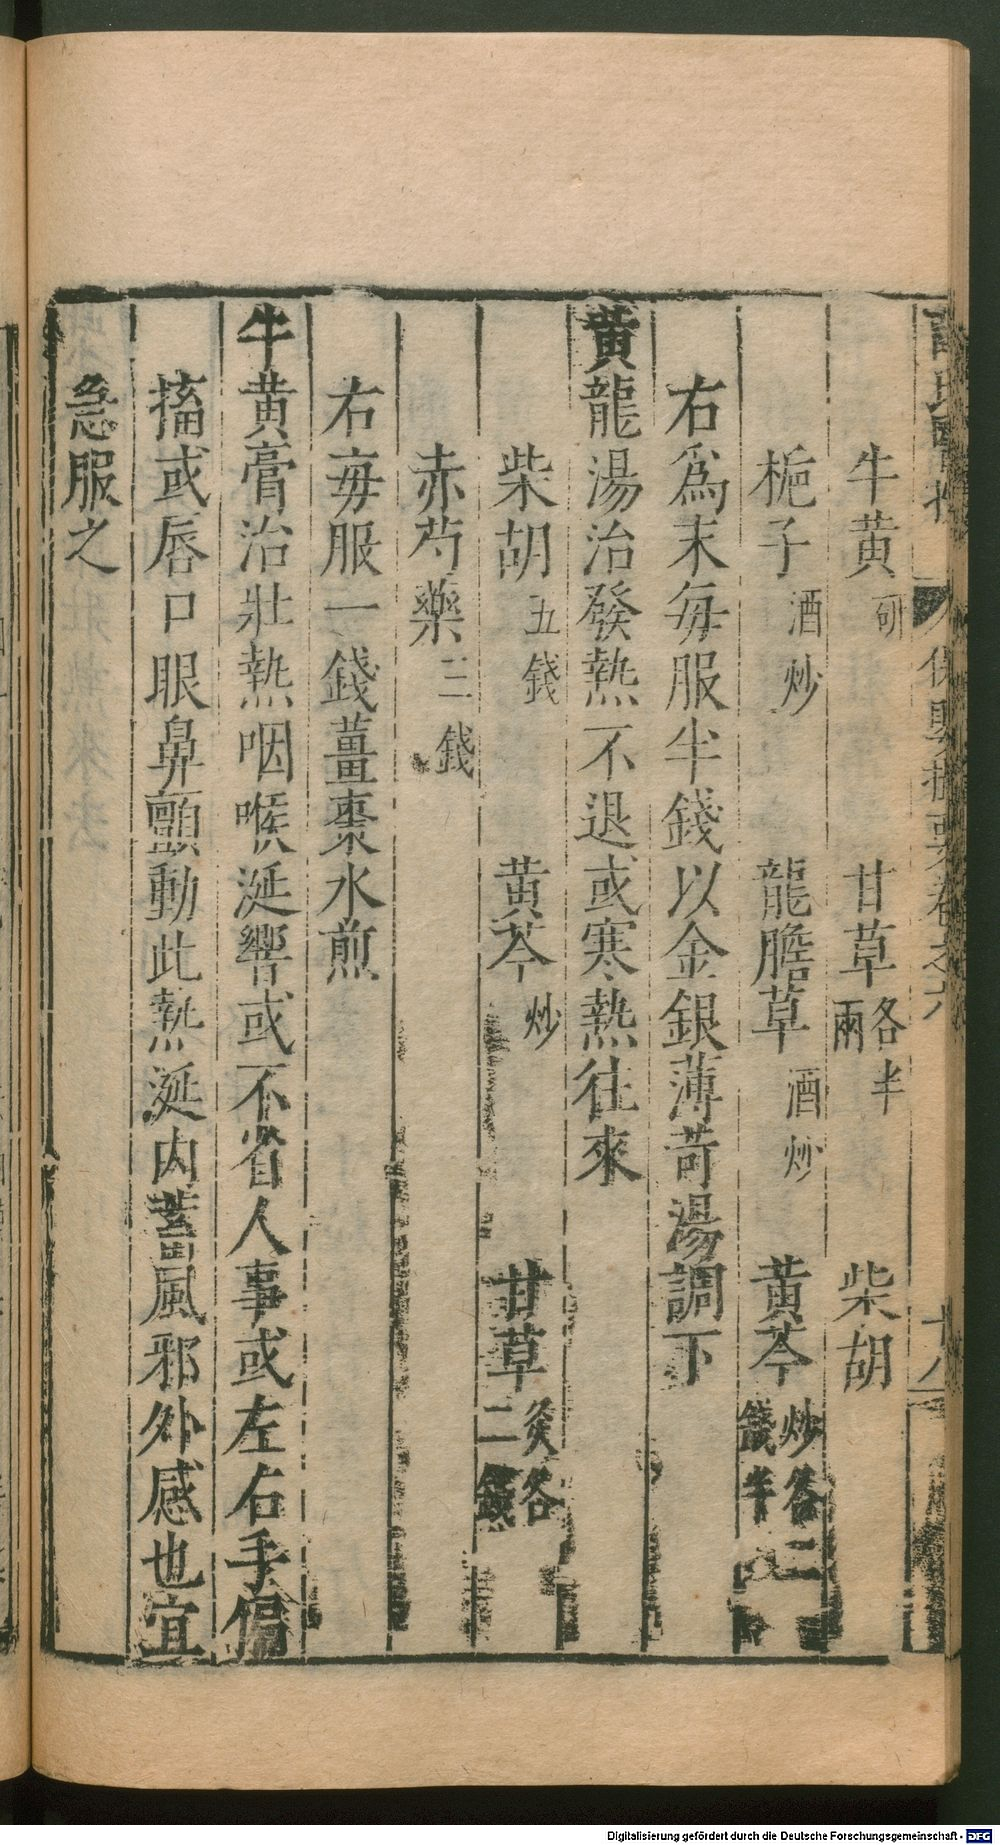 牛黄研 甘草各半兩 柴胡
梔子酒炒 龍膽草酒炒 黄芩炒各二錢半
右爲末每服半錢以金銀薄荷湯調下
黄龍湯治發熱不退或寒熱往來
柴胡五錢 黄芩炒 甘草炙各二錢
赤芍藥三錢
右每服一錢薑棗水煎
牛黄膏治壯熱咽喉涎響或不省人事或左右手偏
搐或唇口眼鼻顫動此熱涎内蓄風邪外感也宜
急服之
保嬰撮要卷之六
十八
Digitalisierung gefördert durch die Deutsche Forschungsgemeinschaft - DFG